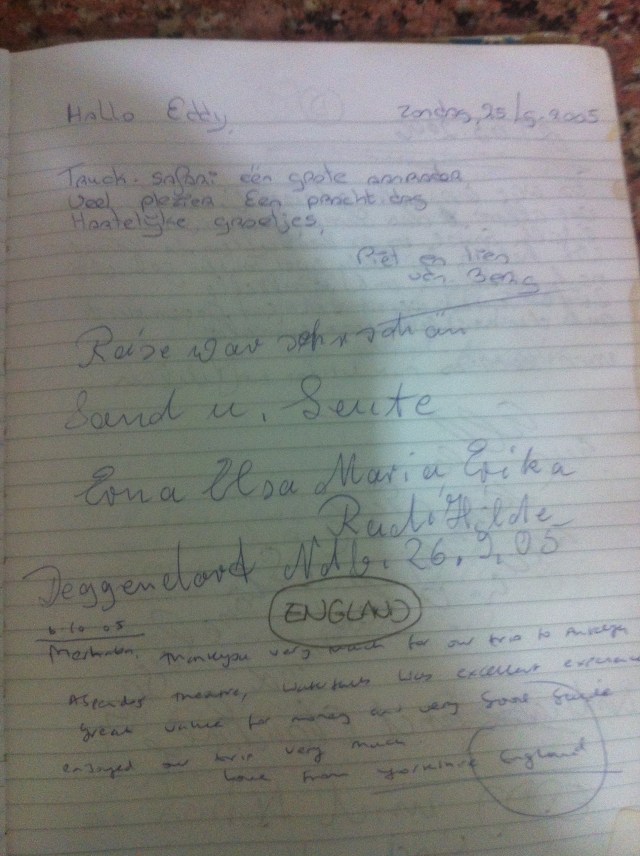 Hallo Eddy, zondag, 25/9-2005
Truck-safari één grote
veel plezier Een pracht.dag
Hartelijke groetjes,
Piet en Lien
van Berg
Reise war sehr schön
Land u. Leute
Erna Elsa Maria Erika
Rudi Hilde
Deggendorf Ndb. 26.9.05
ENGLAND
6-10-05
Merhaba, Thankyou very much for our trip to
Aspendos theatre, waterfalls was excellent experience
great value for money and very good guide
enjoyed our trip very much
love from Yorkshire England